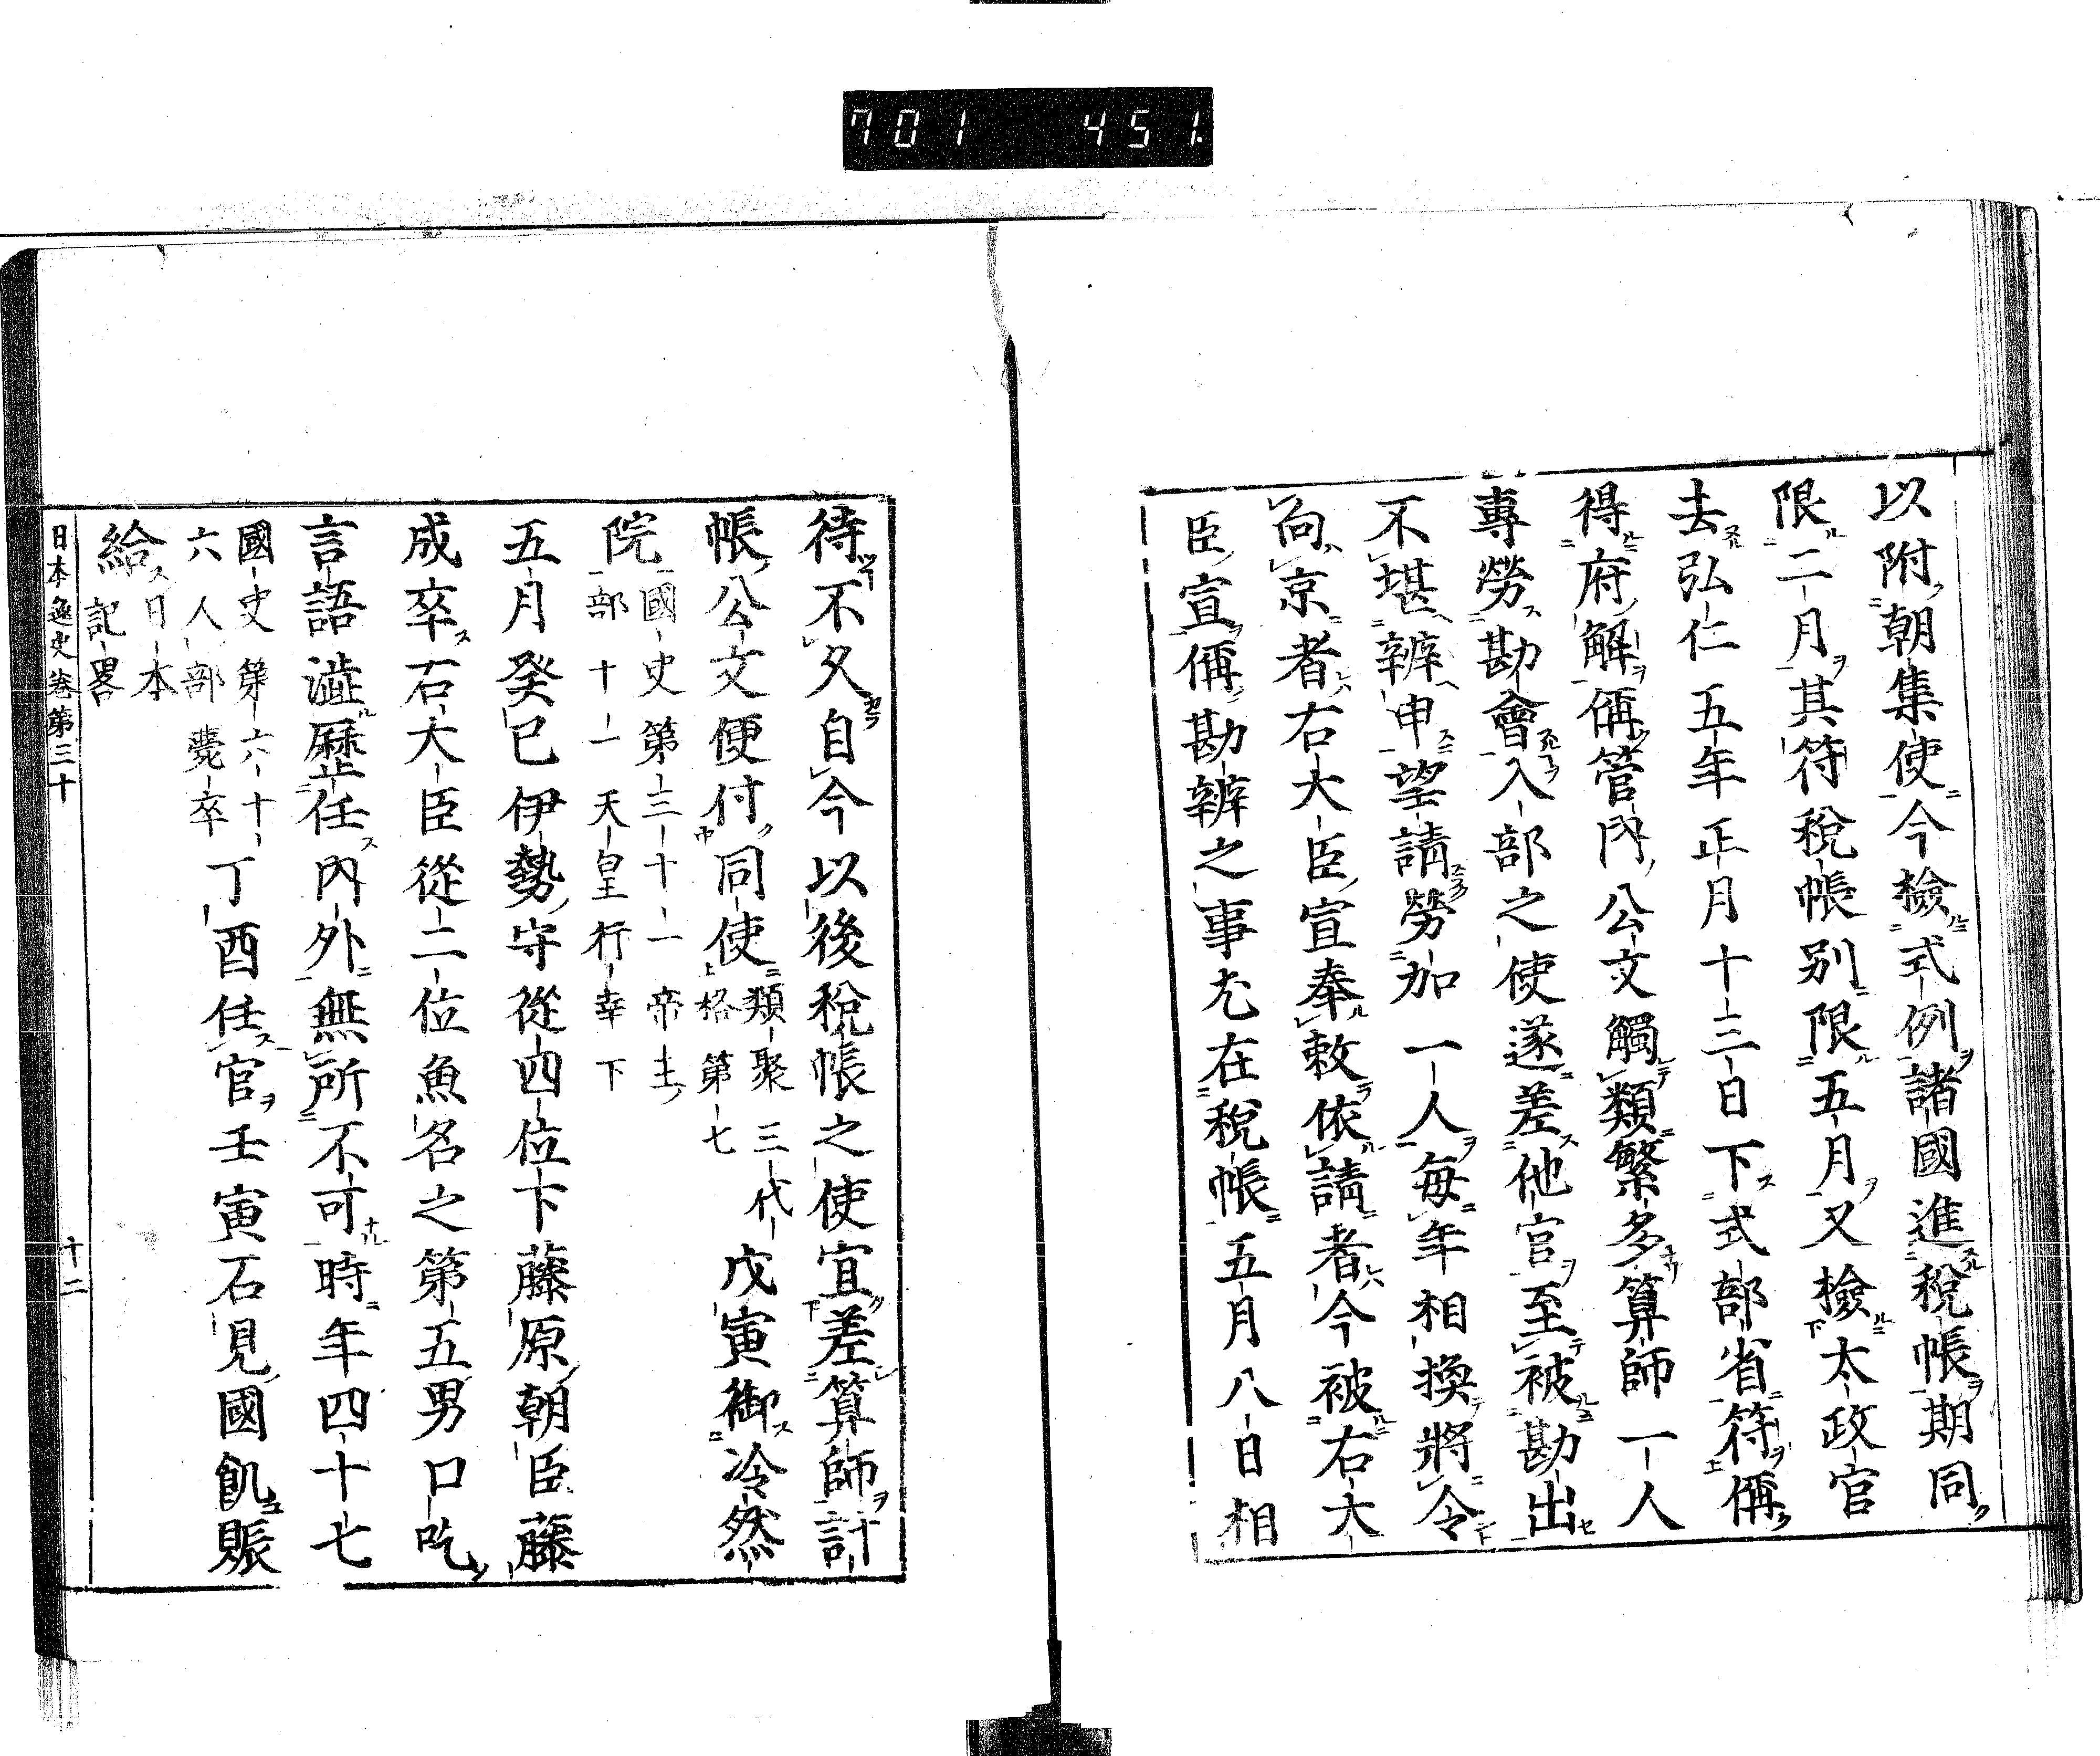 701 451
以附朝集使今檢式例諸國進稅帳期同
限二月其符稅帳別限五月又檢太政官
去弘仁五年正月十三日下式部省符偁
得府解偁管內公文觸類繁多算師一人
專勞勘會入部之使遂差他官至被勘出
不堪辨申望請勞加一人每年相換將令
向京者右大臣宣奉敕依請者今被右大
臣宣偁勘辨之事尤在稅帳五月八日相
待不久自今以後稅帳之使宜差算師計
帳公文便付同使類聚三代格第七戊寅御冷然
院國史第三十一帝王部十一天皇行幸下
五月癸巳伊勢守從四位下藤原朝臣藤
成卒右大臣從二位魚名之第五男口吃
言語澁歷任內外無所不可時年四十七
國史第六十六人部薨卒丁酉任官壬寅石見國飢賑
給日本記畧
日本逸史卷第三十 十二